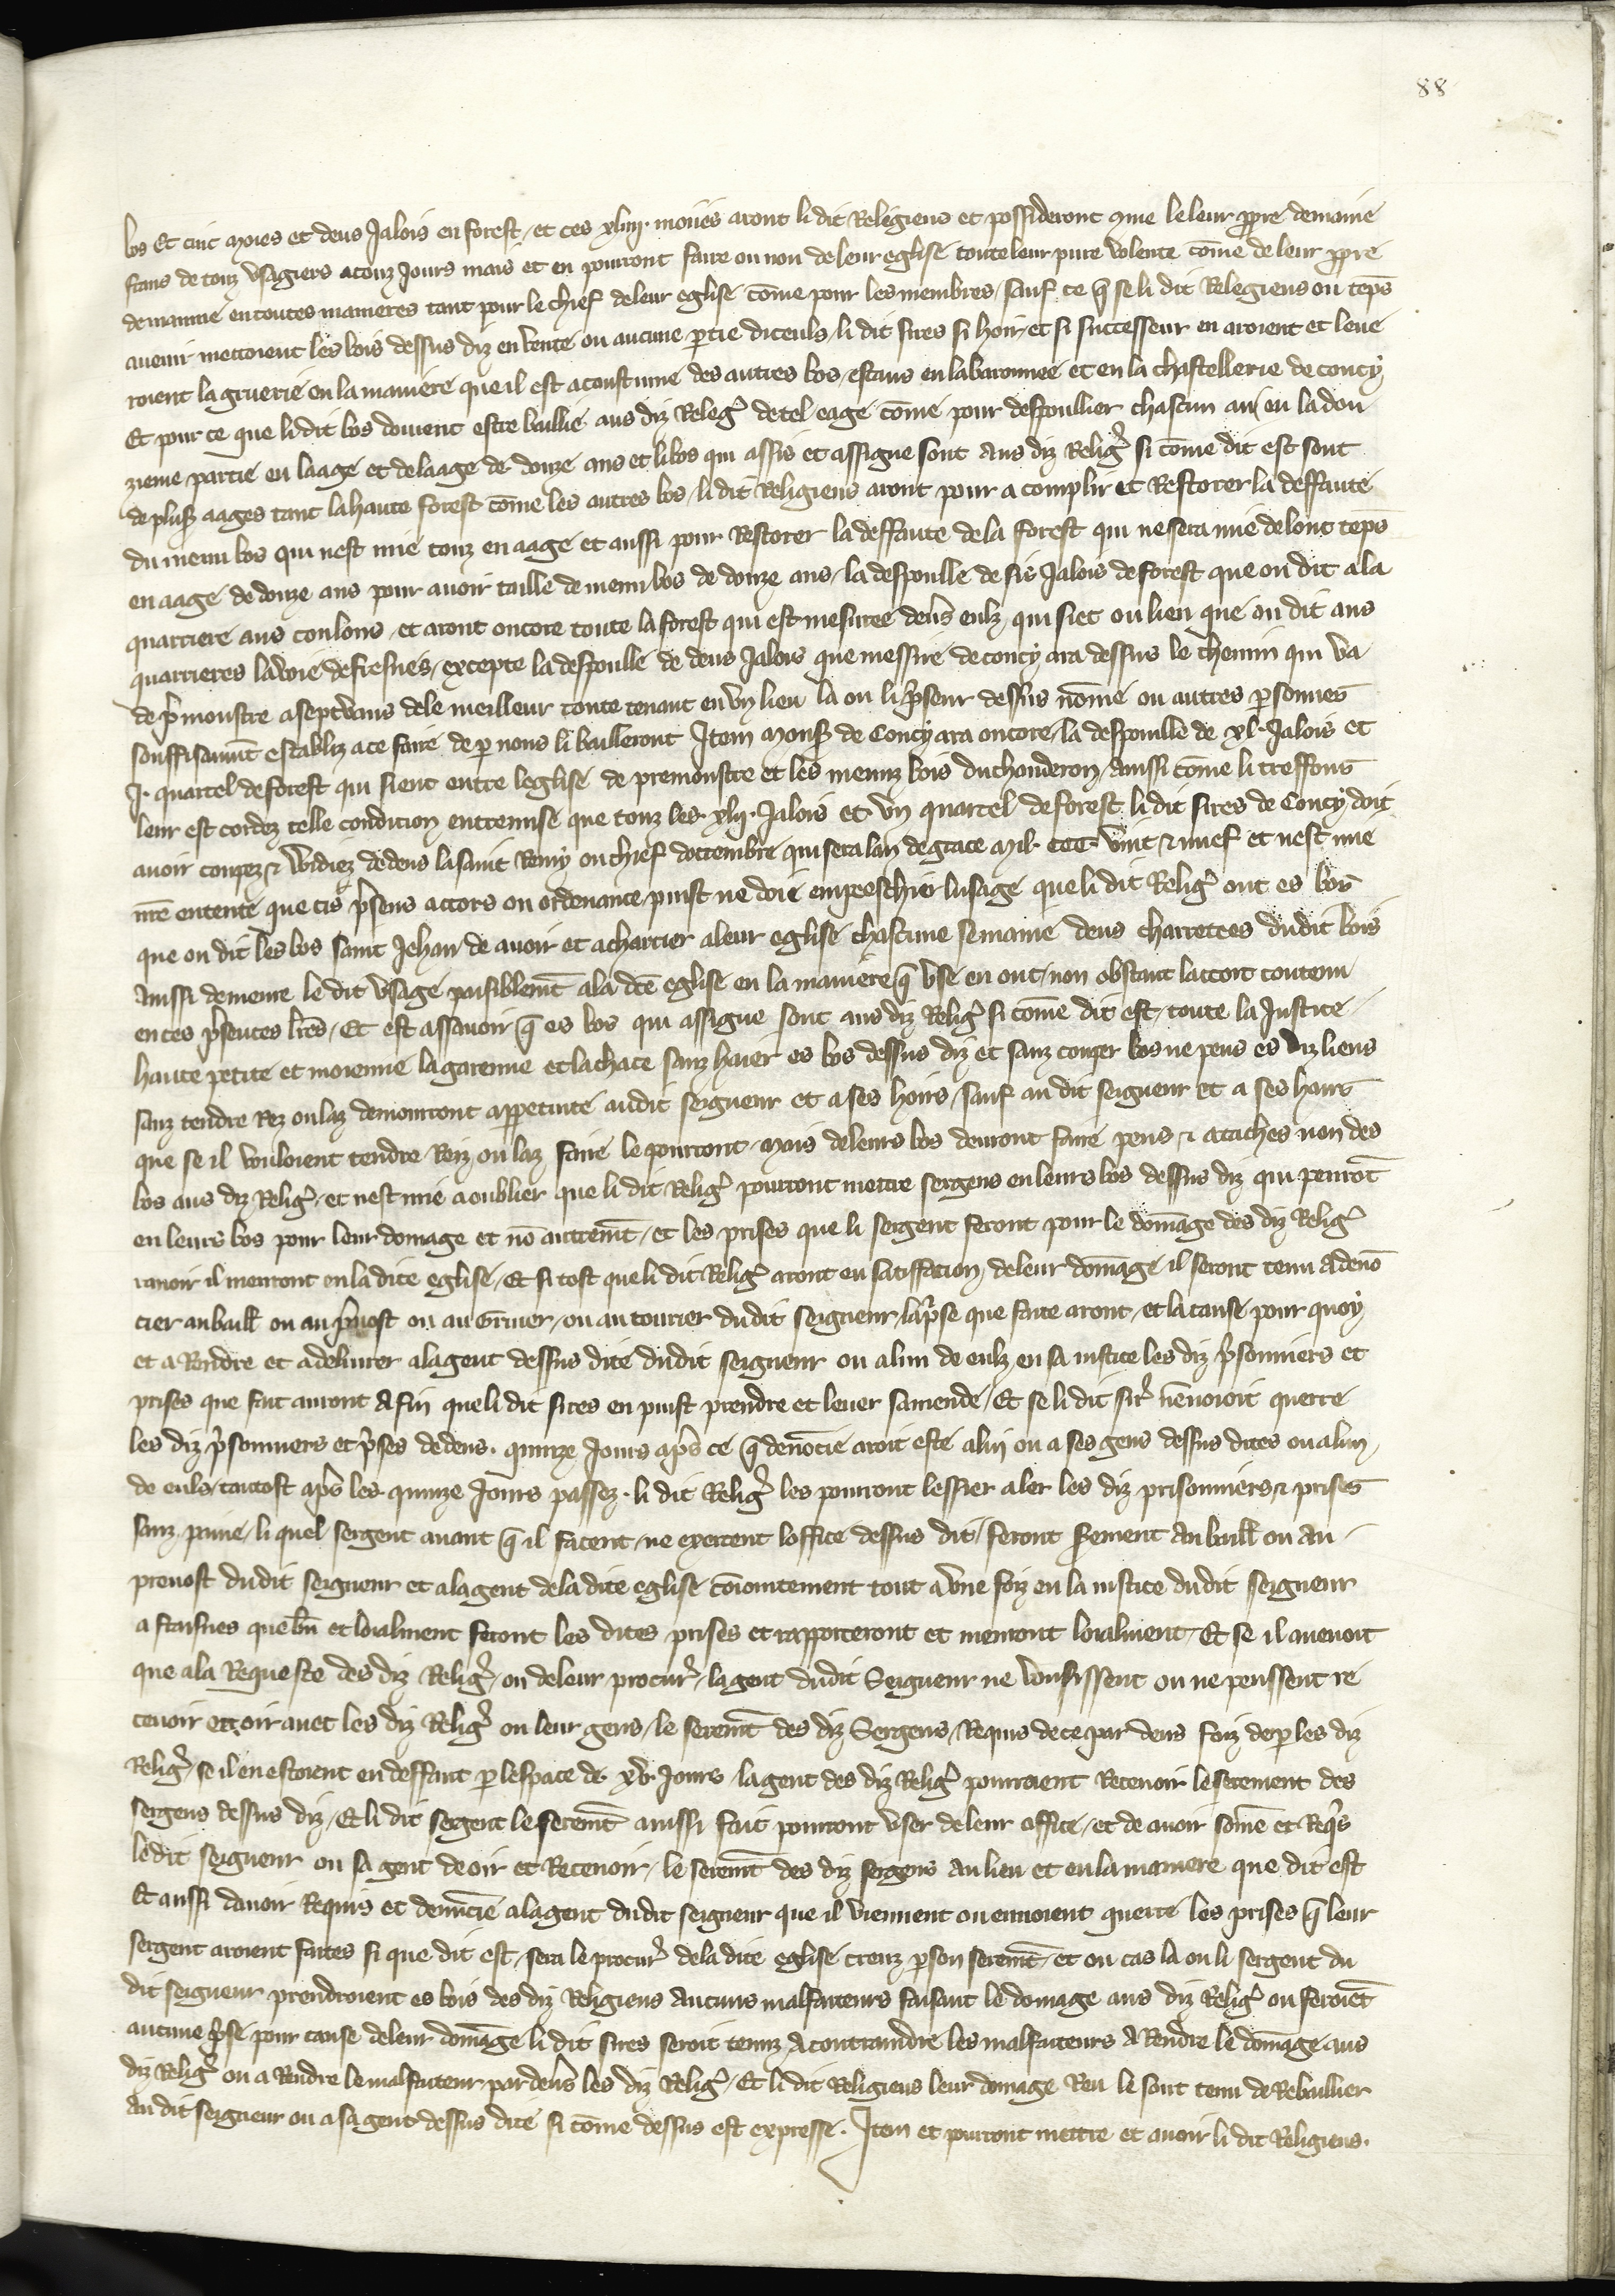 88
bos Et cinc moies et deus Jalois en forest, et ces xliiij. moiies aront li dit Religieus et possideront cōme le leur ꝓpre demaine
frans de touz vsagiers a touz Jours mais et en pourront faire ou non de leur eglise toute leur pure volente cōme de leur ꝓpre
demainne en toutes manieres tant pour le chief de leur eglise cōme pour les membres / sauf ce q̄ se li dit Relegieus ou tēps
auenir mettoient les bois dessus diz en vente ou aucune ꝑtie diceuls / li dit sires si hoir et si successeur en aroient et leue
roient la gruerie en la maniere que il est acoustume des autres bos / estans en la baronnee et en la chastellerie de coucy
Et pour ce que li dit bos doiuent estre baillie aus diz Relegꝰ de tel eage cōme pour despoullier chascun an en la dou
zieme partie en laage et de laage de douze ans et li bos qui assis et assigne sont aus diz Religꝰ si cōme dit est sont
de plus̄ aages tant la haute forest cōme les autres bos / li dit Religieus aront pour acomplir et Restorer la deffaute
du menu bos qui nest mie touz en aage et aussi pour Restorer la deffaute de la forest qui ne sera mie de lonc tēps
en aage de douze ans pour auoir taille de menu bos de douze ans / la despoulle de sis Jalois de forest que on dit a la
quarriere aus coulons / et aront oncore toute la forest qui est mesuree deuers eulz qui siet ou lieu que on dit aus
quarrieres la voie de fresnes / excepte la despoulle de deus Jalois que messire de coucy ara dessus le chemin qui va
de p̄monstre a septvaus dele meilleur toute tenant en vn lieu la ou li p̄seur dessus nōme ou autres ꝑsonnes
souffisaumt̄ establiz a ce faire de ꝑ nous li bailleront Item mons̄ de Coucy ara oncore la despouille de xl. Jalois et
J. quartel de forest qui sieut entre leglise de premonstre et les menuz bois du chonderon / aussi cōme li treffons
leur est cordez telle condicion entremise que touz les xlij. Jalois et vn quartel de forest li dit sires de Coucy doit
auoir coupez et widiez dedens la saint Remy ou chief doctembre qui sera lan de grace mil. ccc. vint et nuef et nest mie
n̄re entente que cis p̄sens accors ou ordenance puist ne doie empeeschier lusage que li dit Religꝰ ont es bos
que on dit les bos saint Jehan de auoir et acharrier a leur eglise chascune semaine deus charretees dudit bois
Aussi demeure le dit vsage paisiblemt̄ a la dc̄e eglise en la maniere q̄ vse en ont / non obstant laccort contenu
en ces p̄sentes lr̄es / Et est assauoir q̄ es bos qui assigne sont aus diz Religꝰ si cōme dit est / toute la Justice
haute petite et moienne la garenne et la chace sanz haier es bos dessus diz et sanz couper bos ne peus es diz lieus
sanz tendre Rez ou laz demourront appertenite audit seigneur et a ses hoirs / sauf au dit seigneur et a ses hoirs
que se il vouloient tendre Roiz ou laz faire le pourront / mais de leurs bos deuront faire peus et ataches non des
bos aus diz Religꝰ / et nest mie a oublier que li dit Religꝰ pourront mettre sergens en leurs bos dessus diz qui penrōt
en leurs bos pour leur domage et nō autremt̄ / et les prises que li sergent feront pour le domage des diz Religꝰ
rauoir il menront en la dite eglise / Et si tost que li dit Religꝰ aront eu satiffacion de leur domage il seront tenu a denō
cier au baill̄ ou au p̄uost ou au Gruier / ou au tourier dudit seigneur la p̄se que faite aront / et la cause pour quoy
et a Rendre et a deliurer a la gent dessus dite dudit seigneur ou a lun de eulz en sa iustice les diz p̄sonniers et
prises que fait auront A fin que li dit sires en puist prendre et leuer samende / Et se li dit sirꝰ nēuoioit querre
les diz p̄sonniers et p̄ses dedens quinze Jours ap̄s ce q̄ denōcie aroit este a lui ou a ses gens dessus dites ou a lun
de euls / tantost ap̄s les quinze Jours passez li dit Religꝰ les pourront lessier aler les diz prisonniers et prises
sanz paine / li quel sergent auant q̄ il facent ne excercent loffice dessus dit feront s̄ement au baill̄ ou au
preuost dudit seigneur et a la gent de la dite eglise cōiointement tout a vne foiz en la iustice dudit seigneur
a fraisnes que bn̄ et loialment feront les dites prises et rapporteront et menront loialment / Et se il auenoit
que a la Requeste des diz Religꝰ / ou de leur procurꝰ / la gent dudit Seigneur ne vousissent ou ne peussent re
ceuoir et oir auec les diz Religꝰ ou leur gens / le seremt̄ des diz Sergens / Requis de ce par deus foiz de ꝑ les diz
Religꝰ / se il en estoient en deffaut ꝑ lespace de xv. Jours la gent des diz Religꝰ pourroient Receuoir le serement des
sergens dessus diz / Et li dit sergent le seremt̄ aussi fait pourront vser de leur office / et de auoir sōme et Req̄s
le dit seigneur ou sa gent de oir et Receuoir / le seremt̄ des diz sergens au lieu et en la maniere que dit est
Et aussi dauoir Requis et denūcie a la gent dudit seigneur que il viennent ou enuoient querre les prises q̄ leur
sergent aroient faites si que dit est / sera le procurꝰ de la dite eglise creuz ꝑ son seremt̄ / et ou cas la ou li sergent du
dit seigneur prendroient es bois des diz Religieus aucuns malfaiteurs faisant le domage aus diz Religꝰ ou feroiēt
aucune p̄se pour cause de leur domage li dit sires seroit tenuz a contraindre les malfaiteurs a Rendre le domage aus
diz Religꝰ ou a Rendre le malfaiteur par deuers les diz Religꝰ / Et li dit Religieus leur domage Reu le sont tenu de Rebaillier
au dit seigneur ou a sa gent dessus dite si cōme dessus est expresse. Item et pourront mettre et auoir li dit Religieus.